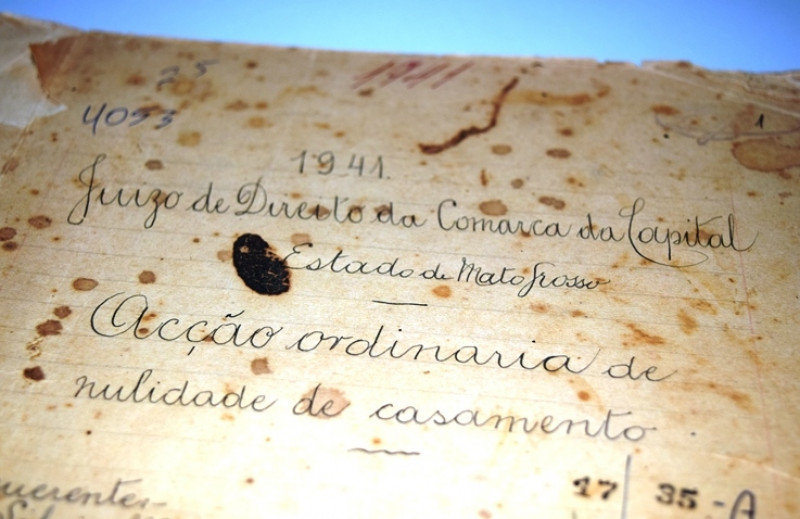 25 1941
4053 1
1941.
Juizo de Direito da Comarca da Capital
Estado de Mato Grosso
Acção ordinaria de
nulidade de casamento.
17 35-A
querentes